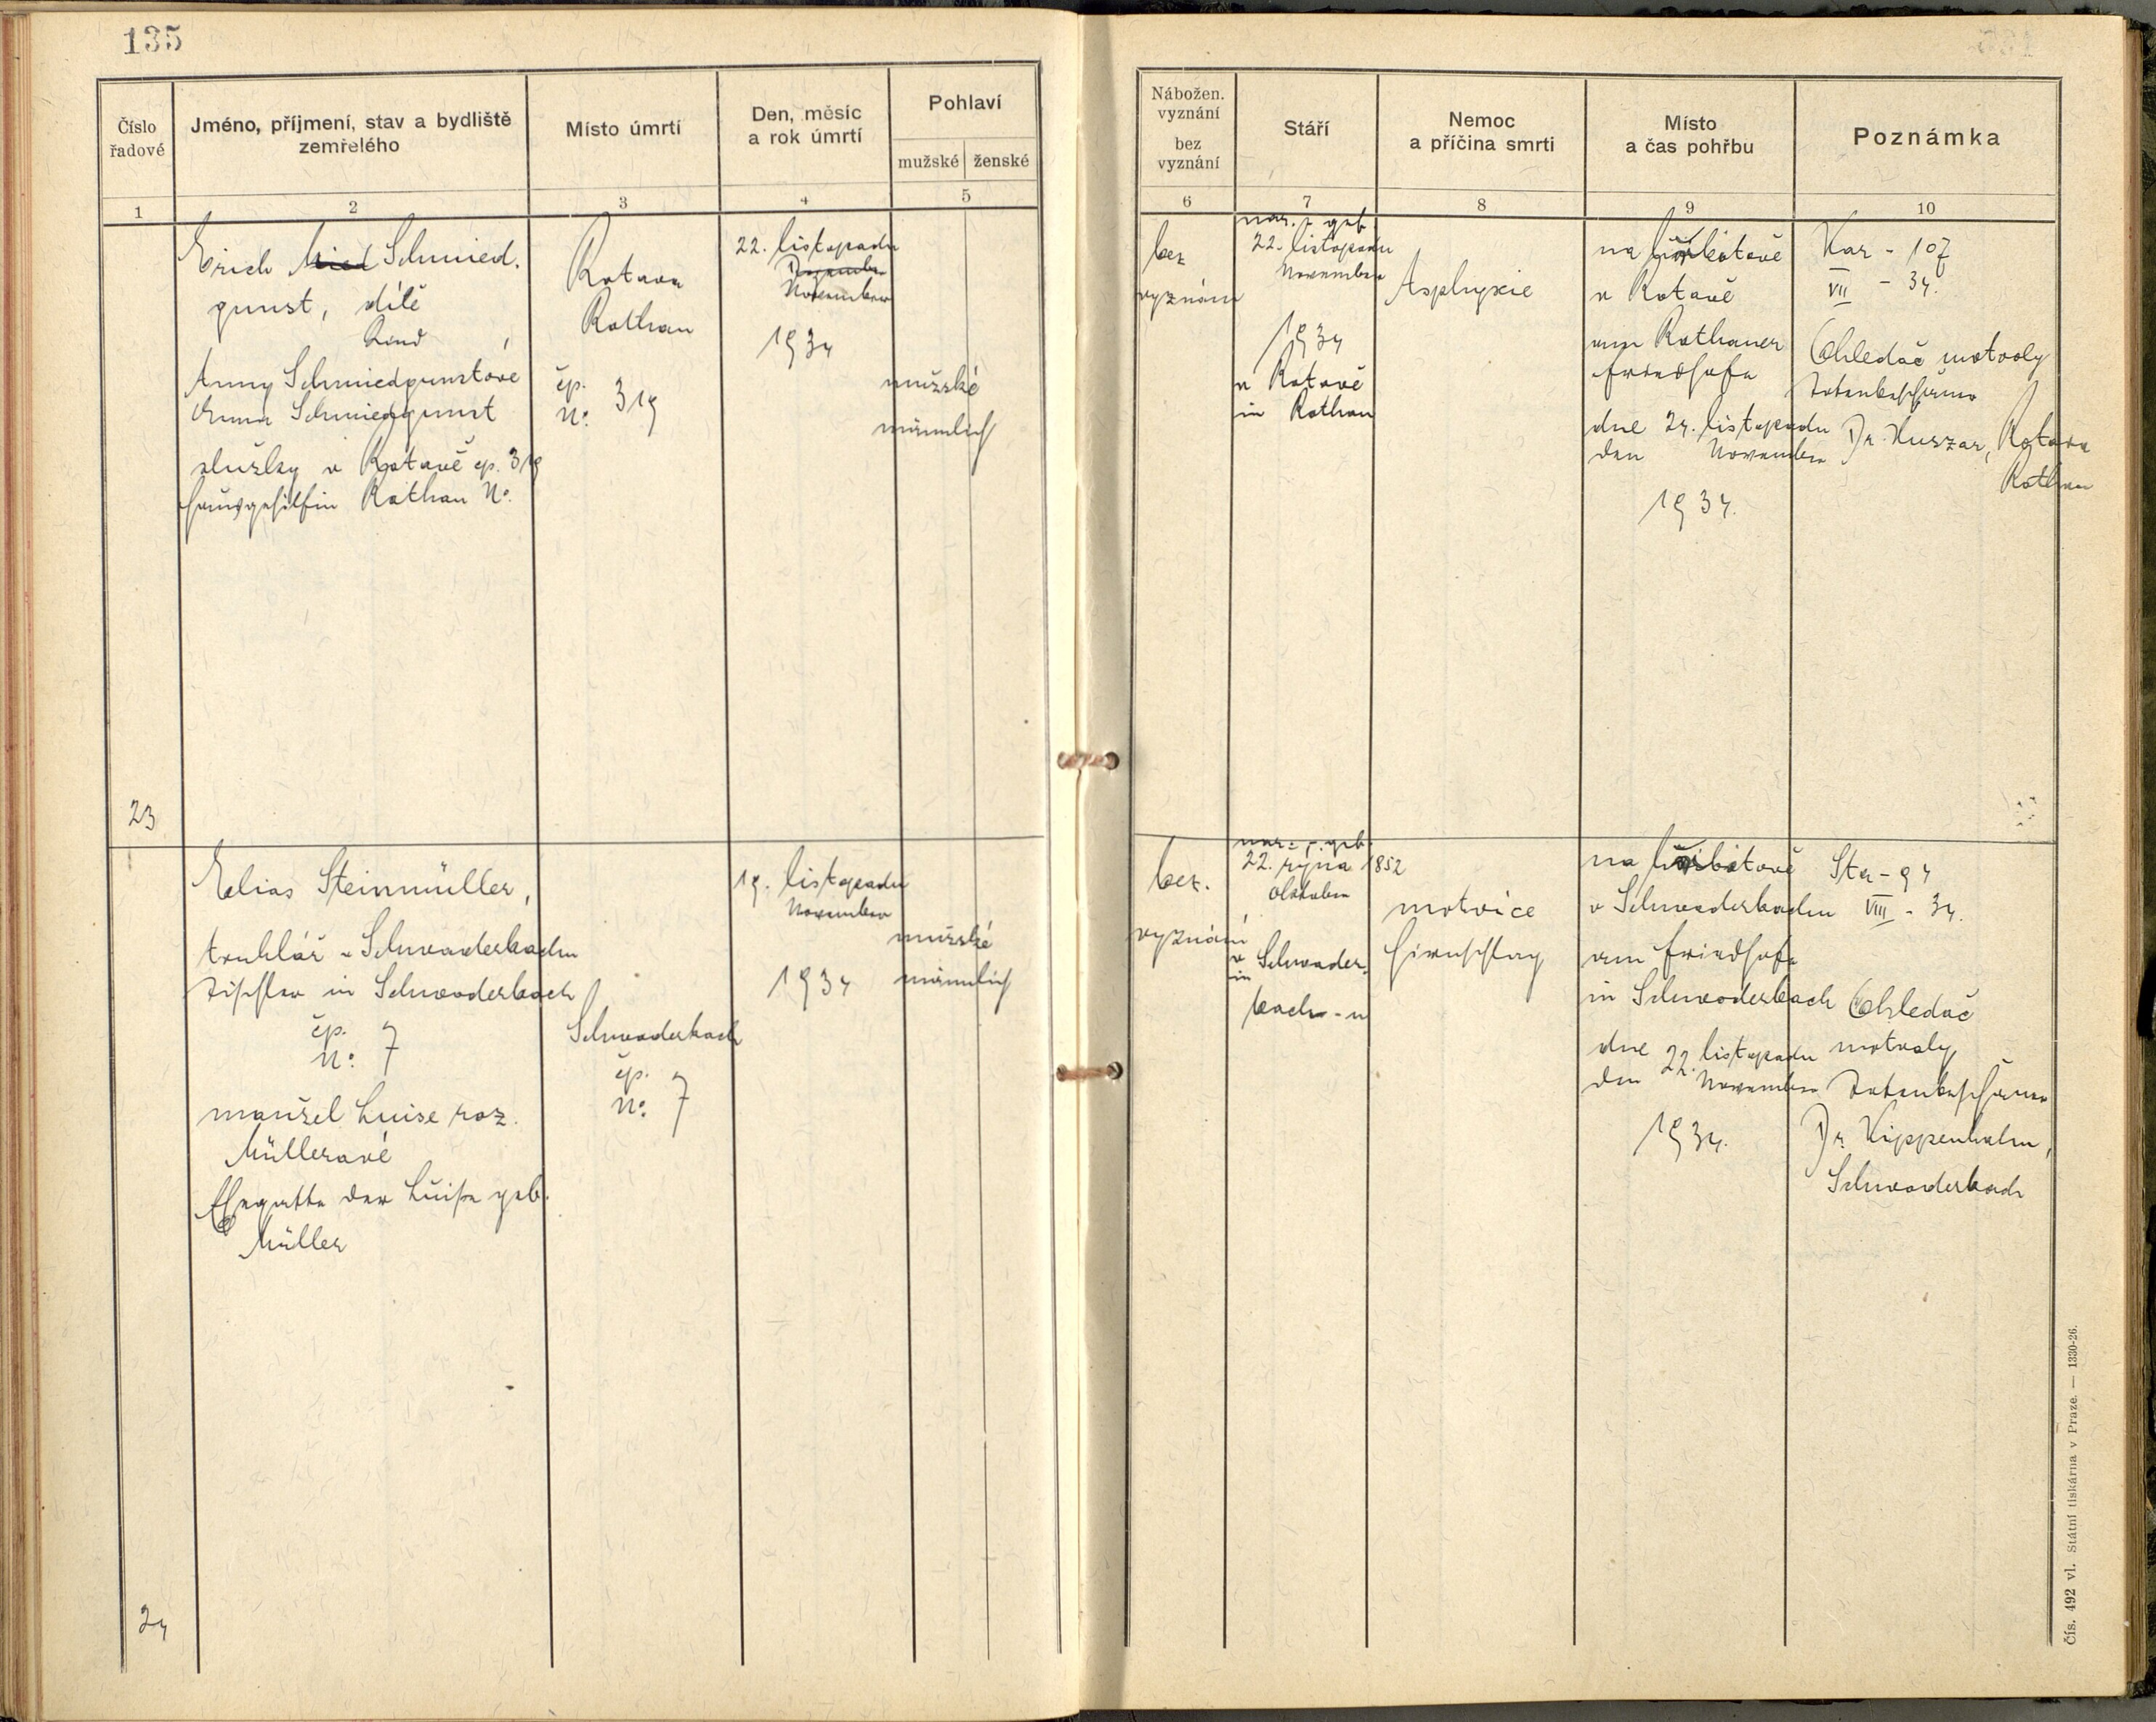 135
Číslo
řadové
Jméno, příjmení, stav a bydliště
zemřelého
Místo úmrtí
Den, měsíc
a rok úmrtí
Pohlaví
mužské ženské
1 2 3 4 5
Erich Schmied-
gunst, dítě
Kind
Anny Schmiedgunstové
Anna Schmiedgunst
služky v Rotavě čp. 319
Hausgehilfin Rothau No.
Rotava
Rothau
čp.
No. 319
22. listopadu
Dezember
November
1934
mužské
männlich
23
Elias Steinmüller,
truhlář v Schwaderbachu
Tischler in Schwaderbach
čp.
No. 7
manžel Luise roz.
Müllerové
Ehegatte der Luise geb.
Müller
Schwaderbach
čp.
No. 7
19. listopadu
November
1934
mužské
männlich
24
Nábožen.
vyznání
bez
vyznání
Stáří
Nemoc
a příčina smrti
Místo
a čas pohřbu
Poznámka
6 7 8 9 10
bez
vyznání
nar. - geb.
22. listopadu
November
1934
v Rotavě
in Rothau
Asphyxie
na hřbitově
v Rotavě
am Rothauer
Friedhofe
dne 24. listopadu
den November
1934.
Kar - 107
VII - 34.
Ohledač mrtvoly
Totenbeschauer
Dr. Huszar, Rotava
Rothau
bez.
vyznání
nar. - geb.
22. října 1852
Oktober
v Schwader-
in
bach-u
mrtvice
Hirnschlag
na hřbitově
v Schwaderbachu
am Friedhofe
in Schwaderbach
dne 22. listopadu
den November
1934.
Ste - 94
VIII - 34.
Ohledač
mrtvoly
Totenbeschauer
Dr. Kippenhahn,
Schwaderbach
Čís. 492 vl. Státní tiskárna v Praze. — 1330-26.